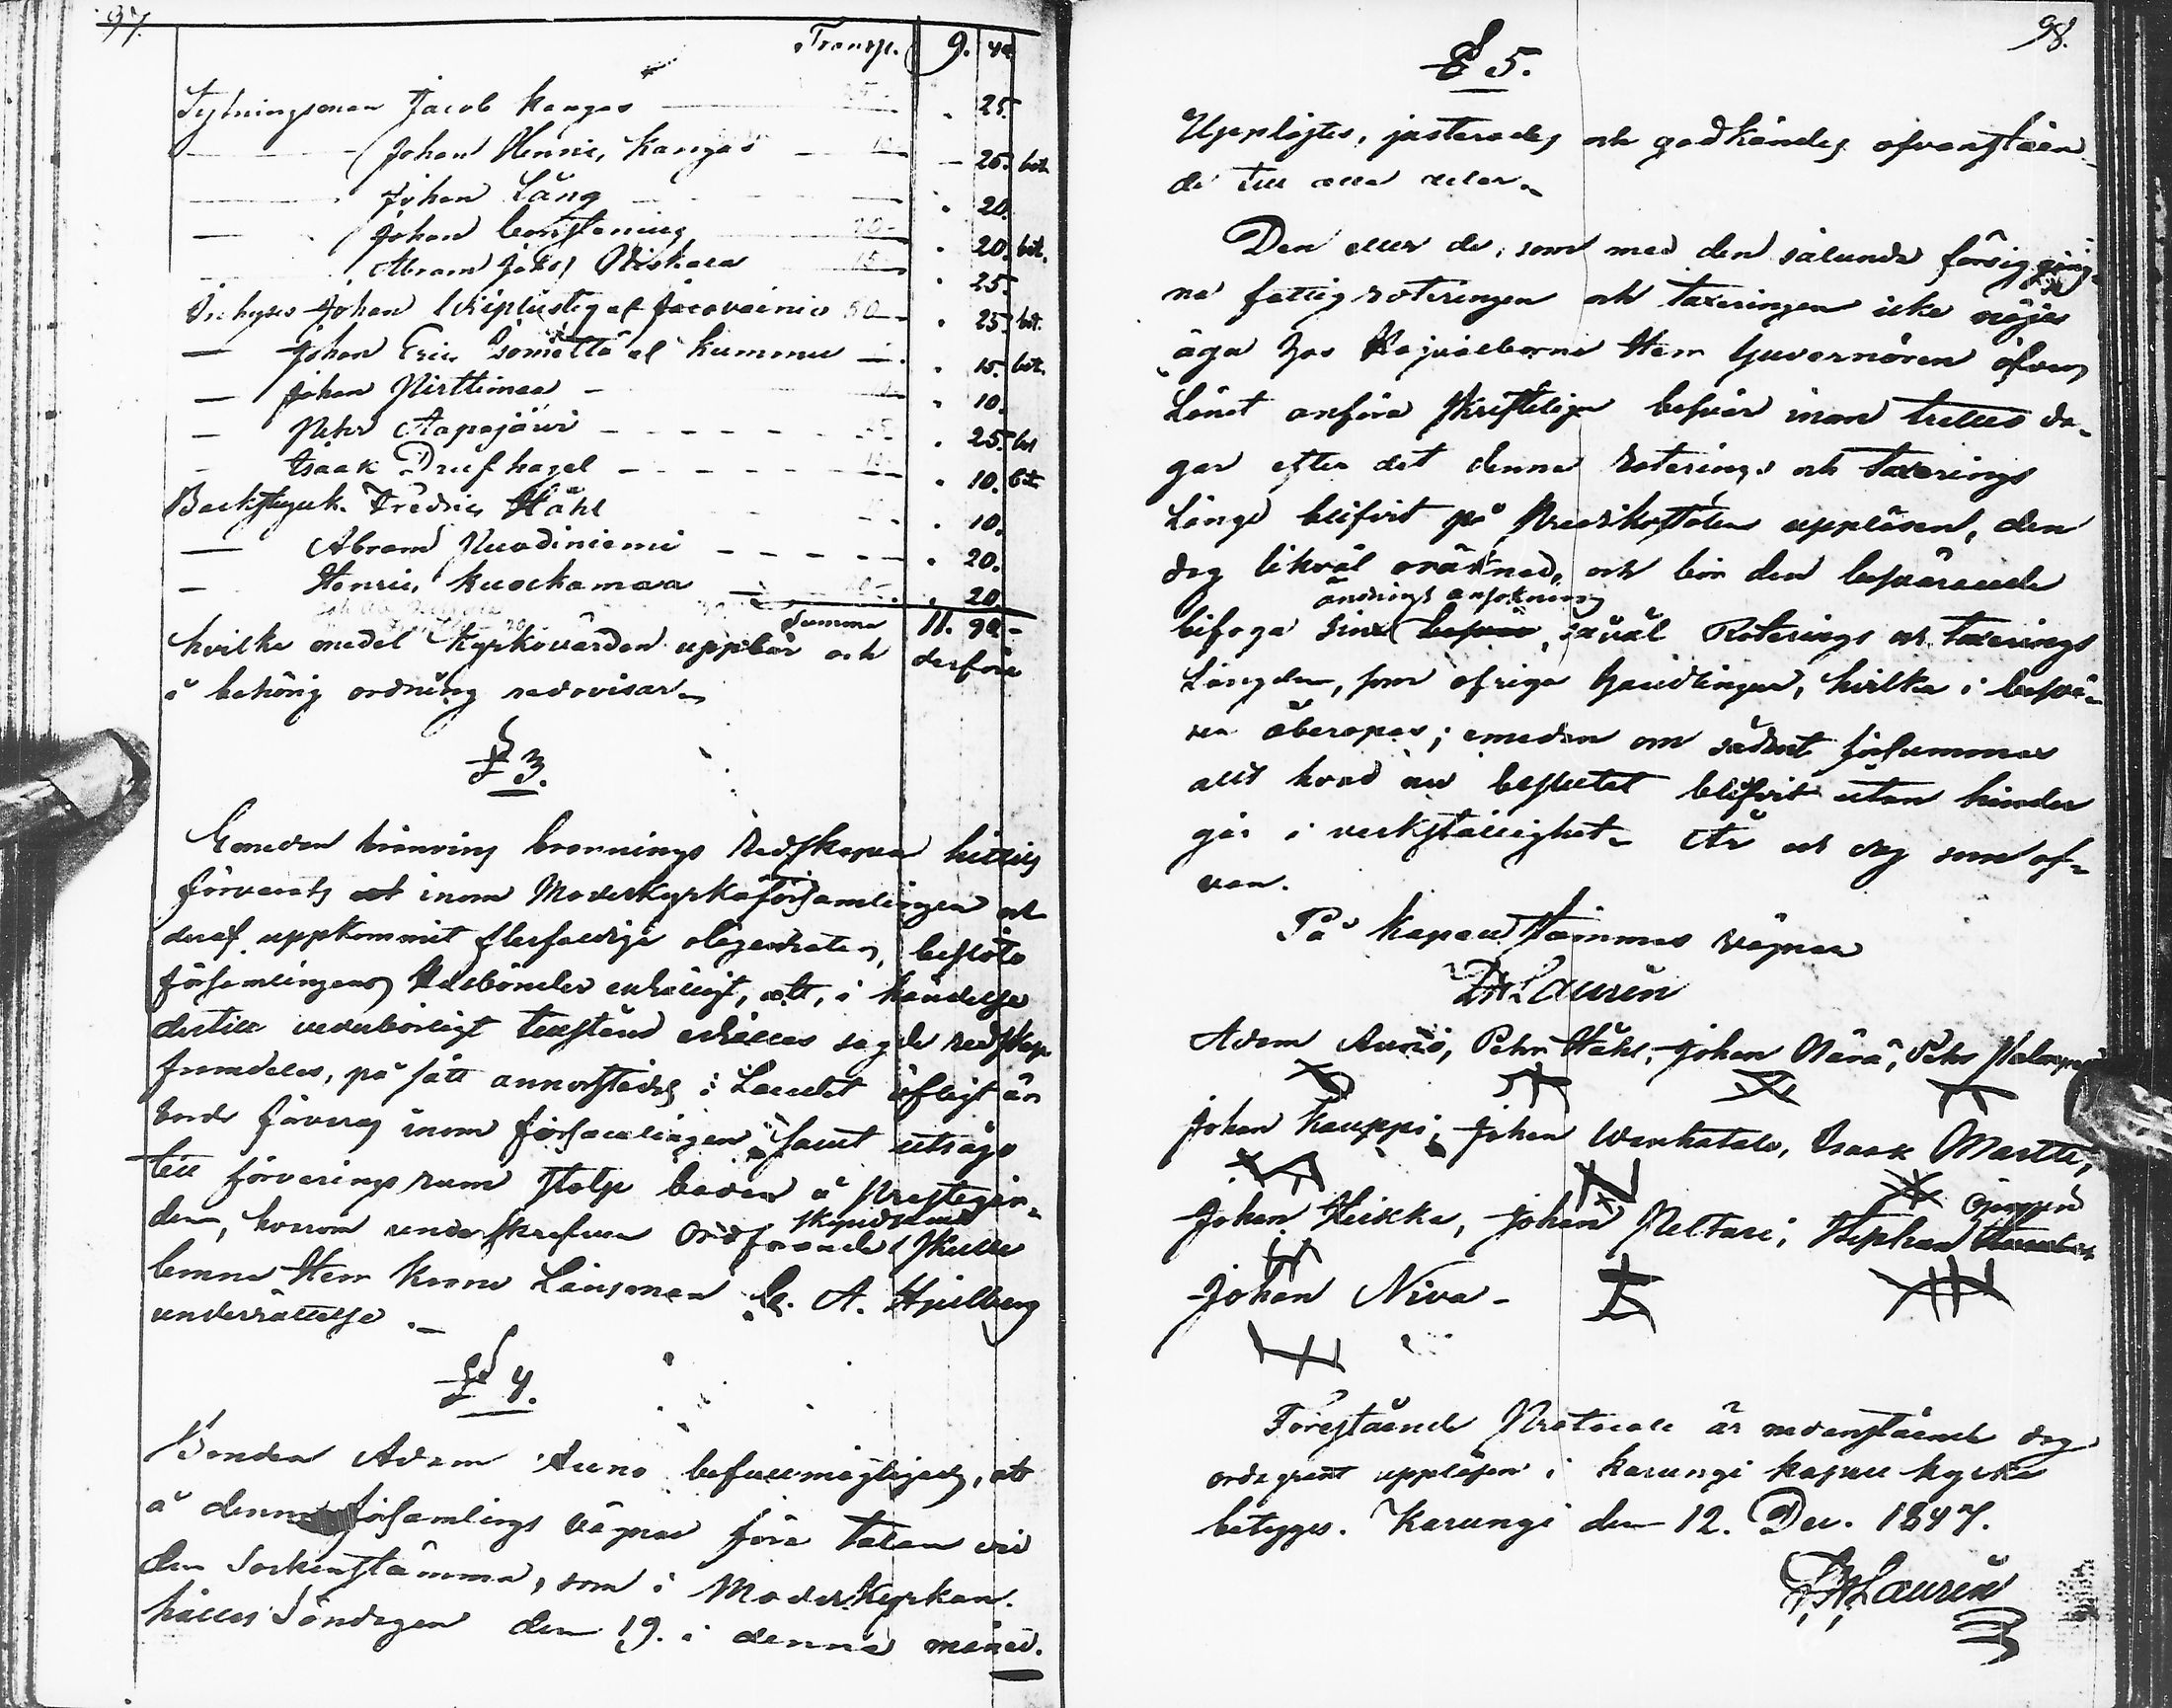 97.
Transp. 9. 40
Sytningsman Jacob Kangas " 25.
— Johan Henric, Kangas — 25. bet.
— Johan Lång " 20.
— Johan Constenius " 20. bet.
— Abram Johs Niskala " 25.
Inhyses Johan " 25. bet.
— Johan Eric Isometsä el Kummu " 15. bet.
— Johan Pirttimaa — " 10.
— Pehr Aapajärvi " 25. bet
— Isaak Drufhagel " 10. bet
Backstuguk. Fredric Ståhl " 10.
— Abram Nuodiniemi " 20.
— Henric, Kuockamaa " 20
Summa 11. 90 –
hvilka medel Kyrkovärden uppbär och derföre
i behörig ordning redovisar.
§ 3.
Emedan bränvins brännings Redskapen hittils
förvarats inom Moderkyrkoförsamlingen och
deraf uppkommit flerfaldiga olägenheter, beslöto
församlingens Rusbönder enhälligt, att, i händelse
dertill vederbörligt tillstånd erhålles sagde redskap
framdeles, på sätt annorstädes i Landet öfligt är
borde förvaras inom församlingen, samt utsågo
till förvarings rum stolp boden å Prestegår-
den, hvarom underskrefven Ordförande skyndsamt skulle
lemna Herr Krono Länsman C. A. Hjulberg
underrättelse. —
§ 4.
Bonden Adam Auno befullmägtigades, att
å denna församlings vägnar föra talan vid
den Sockenstämma, som i Moderkyrkan
hålles Söndagen den 19. i denna månad.
98.
§ 5.
Upplästes, justerades och godkändes ofvanståen-
de till alla delar.
Den eller de, som med den sålunda försiggång-
na fattigroteringen och taxeringen icke nöjes
äga hos Herr Guvernören öfver
Länet anföra skrifteliga besvär inom trettio da-
gar efter det denna Roterings och Taxerings
Längd blifvit på Predikostolen uppläsen, den
dag likväl oräknad, och bör den besvärande
ändrings ansökning
bifoga sina besvär, såväl Roterings och Taxerings
Längden, som öfriga handlingar, hvilka i besvä-
ren åberopas; emedan om sådant försummas
allt hvad nu beslutet blifvit utan hinder
går i verkställighet. År och dag som of-
van.
På Kapellstämmas vägnar
Laurin
Adam Auno, Pehr Ståhl, Johan Närä, Pehr
Johan Kauppi, Johan Wankatalo, Isaak Martti,
Ojanperä
Johan Heikka, Johan Peltari, Stephan
Johan Niva –
Förestående Protocoll är nedanstående dag
ordagrant uppläsen i Karungi Kapell kyrka
betygges. Karungi den 12. Dec. 1847.
Laurin